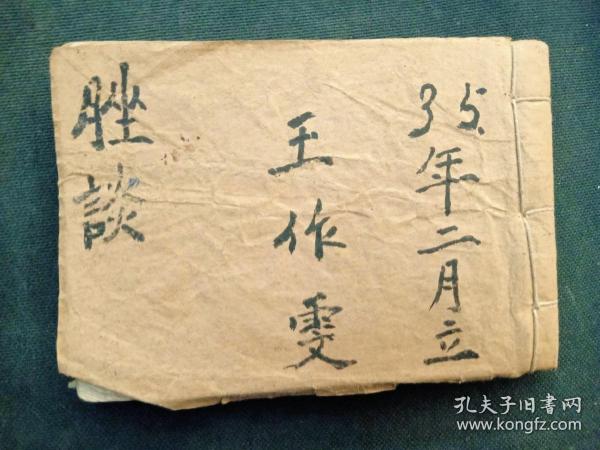 35.年二月立
王作雯
脞談
孔夫子旧書网
www.kongfz.com